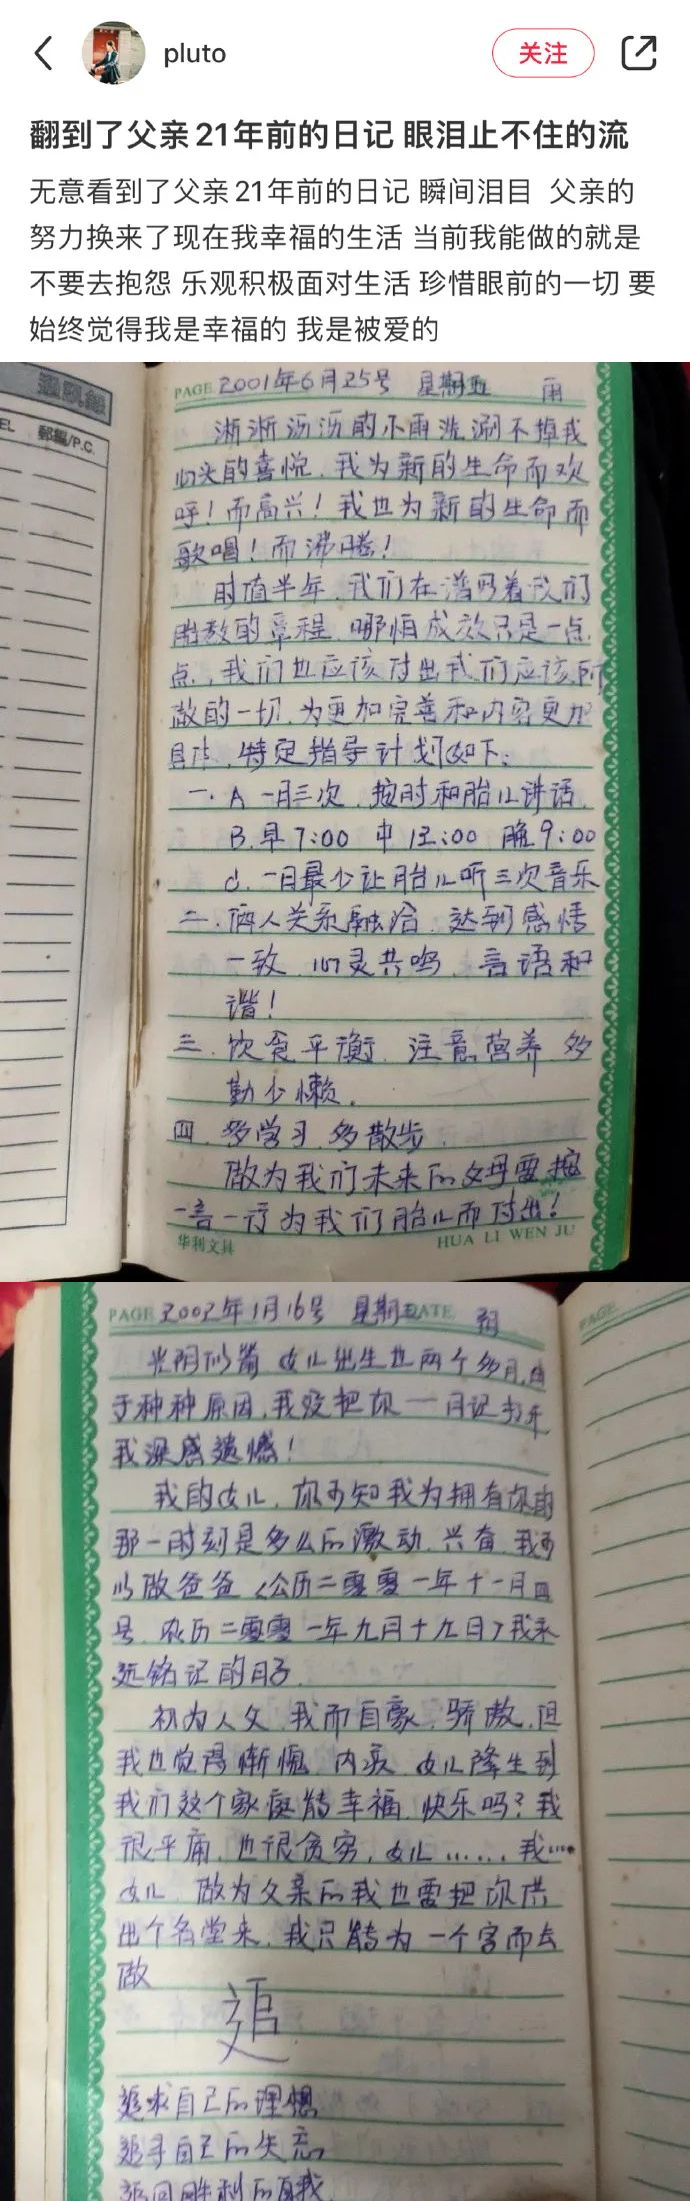 pluto
关注
翻到了父亲21年前的日记 眼泪止不住的流
无意看到了父亲21年前的日记 瞬间泪目 父亲的
努力换来了现在我幸福的生活 当前我能做的就是
不要去抱怨 乐观积极面对生活 珍惜眼前的一切 要
始终觉得我是幸福的 我是被爱的
郵編/P.C.
PAGE 2001年6月25号 星期五 雨
淅淅沥沥的小雨洗涮不掉我
心头的喜悦，我为新的生命而欢
呼！而高兴！我也为新的生命而
歌唱！而沸腾！
时值半年，我们在谱写着我们
胎教的章程，哪怕成效只是一点
点，我们也应该付出我们应该所
做的一切，为更加完善和内容更加
具体，特定指导计划如下：
一．A 一日三次，按时和胎儿讲话．
B.早7:00 中12:00 晚9:00
C.一日最少让胎儿听三次音乐
二．俩人关系融洽，达到感情
一致，心灵共鸣，言语和
谐！
三．饮食平衡，注意营养，多
勤少懒．
四．多学习，多散步
做为我们未来的父母要按
一言一行为我们胎儿而付出！
华利文具 HUA LI WEN JU
PAGE 2002年1月16号 星期五DATE 阴
光阴似箭，女儿出生也两个多月，由
于种种原因，我没把你一一日记书开
我深感遗憾！
我的女儿，你可知我为拥有你的
那一时刻是多么的激动，兴奋，我可
以做爸爸〈公历二零零一年十一月四
号，农历二零零一年九月十九日〉我永
远铭记的日子．
初为人父，我而自豪，骄傲，但
我也觉得惭愧，内疚，女儿降生到
我们这个家庭能幸福，快乐吗？我
很平庸，也很贫穷，女儿……，我…
女儿，做为父亲的我也要把你供
出个名堂来，我只能为一个字而去
做
追
追求自己的理想
追寻自己的失意
追回胜利的自我
PAGE